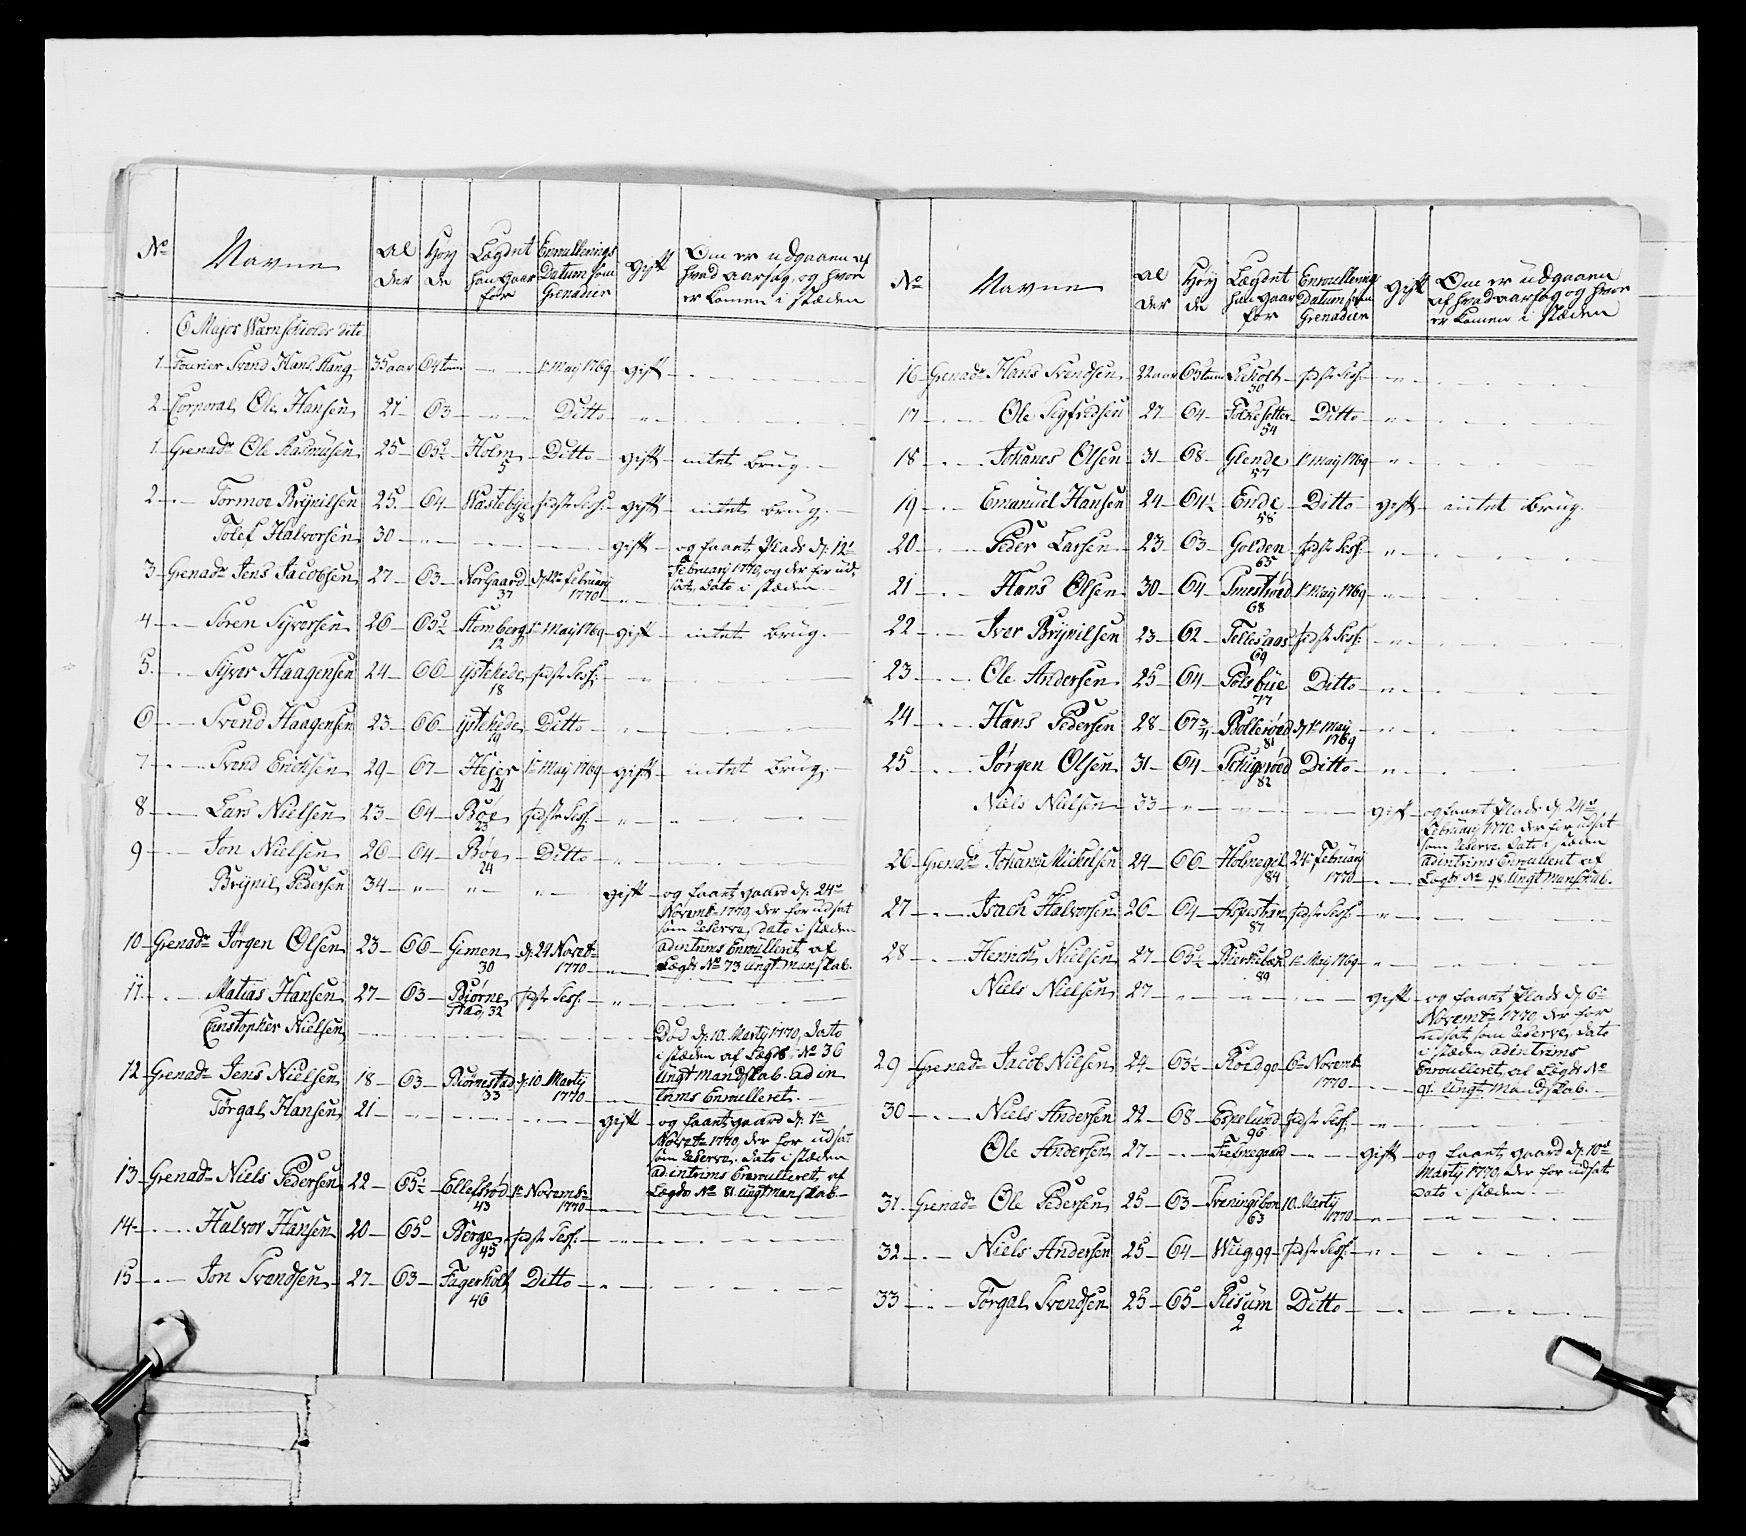 No Navne Al Høy Lægdet Enroullerings Gift Om er udgaaen af
der de han gaar Datum som hvad aarsag, og hvor
for Grenadier er komen i stæden
C Major Warnschiolds dito
1 Fourier Svend Hans. Haug 35 aar 64 tom 1te Maij 1769 gift
2 Corporal Ole Hansen 27 63 Ditto
1 Grenadr Ole Rasmusen 25 65½ Holm 5 Ditto gift intet brug
2 Tormoe Brynilsen 25 64 Wastebye 8 sidste Sess: gift intet brug
Tolef Halvorsen 30 gift og faaet Plads d. 12te
Februarij 1770, og der for ud,
sat, dato i stæden
3 Grenadr Jens Jacobsen 27 63 Norgaard 37 d. 12te Februarij 1770
4 Søren Syversen 26 65½ Stomberg 12 1te Maij 1769 gift intet brug
5 Syver Haagensen 24 66 ystehede 18 sidste Sess:
6 Svend Haagensen 23 66 ystehede 19 Ditto
7 Svend Erichsen 29 67 Hejer 21 1te Maij 1769 gift intet brug
8 Lars Nielsen 23 64 Bøe 23 sidste Sess:
9 Jon Nielsen 26 64 Bøe 24 Ditto
Brynil Pedersen 34 gift og faaet gaard d. 24de
Novembr 1770, der for udsat
som Reserve, dato i stæden
ad intrims Enroulleret af
Lægds No 73 ungt manskab
10 Grenadr Jørgen Olsen 23 66 Gimen 30 d. 24 Novebr 1770
11 Matias Hansen 27 63 Biørne stad, 32 sidste Sess:
Christopher Nielsen Død d. 10 Martij 1770, dato
i stæden af Lægds No 36
ungt mandskab ad in
trims Enroulleret
12 Grenadr Jens Nielsen 18 63 Biørnestad 33 d. 10 Martij 1770
Tørgal Hansen 21 gift og faaet gaard d. 1te
Novebr 1770, der for udsat
som Reserve, dato i stæden
ad intrims Enroulleret af
Lægds No 81 ungt manskab
13 Grenadr Niels Pedersen 22 65½ Ellefsrød 43 1te Novembr 1770
14 Halvor Hansen 20 65 Berge 45 sidste Sess:
15 Jon Svendsen 27 63 Fagerholt 46 Ditto
No Navne Al Høy Lægdet Enroullering Gift Om er udgaaen
der de han gaar Datum som af hvad aarsag og hvor
for Grenadier er komen i stæden
16 Grenadr Hans Svendsen 22 aar 63 tom Leeholt 50 sidste Sess:
17 Ole Sigfredsen 27 64 Folkesetter 54 Ditto
18 Johanes Olsen 31 68 Glende 57 1te Maij 1769
19 Emanuel Hansen 24 64½ Ende 58 Ditto gift intet brug
20 Peder Larsen 23 63 Golden 65 sidste Sess:
21 Hans Olsen 30 64 68 1te Maij 1769
22 Iver Brynilsen 23 62 Fellesaas 69 sidste Sess:
23 Ole Andersen 25 64 Polsbue 77 Ditto
24 Hans Pedersen 28 67¾ Bollerød 81 d. 1te Maij 1769
25 Jørgen Olsen 31 64 82 Ditto
Niels Nielsen 33 gift og faaet Plads d. 24de
Februarij 1770, der for udsat
som Reserve, dato i stæden
ad intrims Enroulleret af
Lægds No 98 ungt manskab
26 Grenadr Johanes Mickelsen 24 66 Holvegil 84 24de Februarij 1770
27 Isach Halvorsen 26 64 Aspestran 87 sidste Sess:
28 Henrich Nielsen 27 65½ Bierkebæk 89 1te Maij 1769
Niels Nielsen 27 gift og faaet Plads d. 6te
Novembr 1770, der for
udsat som Reserve, dato
i stæden ad intrims
Enroulleret af Lægds No
91 ungt Mandskab
29 Grenadr Jacob Nilsen 24 63½ Roed 90 6te Novemb 1770
30 Niels Andersen 22 68 Espelund 96 sidste Sess:
Ole Andersen 27 gift og faaet gaard d. 10de
Martij 1770, der for udsat
dato i stæden
31 Grenadr Ole Pedersen 25 63 63 10 Martij 1770
32 Niels Andersen 25 64 Wiig 99 sidste Sess:
33 Tørgal Svendsen 25 65 Risum 2 Ditto